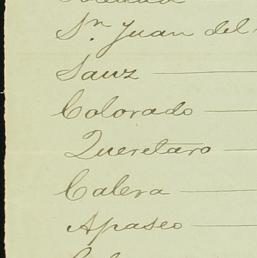 Sn. Juan del
Sauz
Colorado
Queretaro
Calera
Apaseo